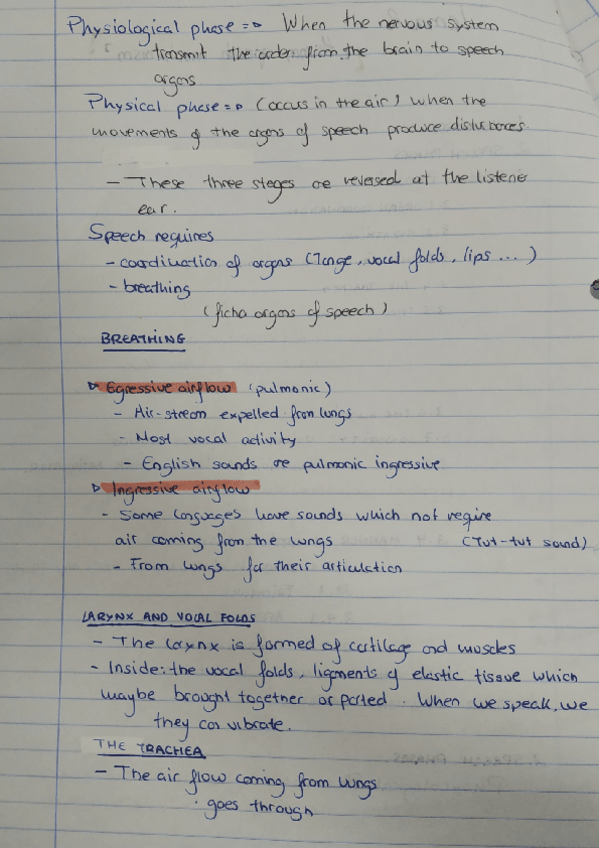 Physiological phase => When the nervous system
transmit the order from the brain to speech
organs
Physical phase => (occus in the air) when the
movements of the organs of speech produce disturbances.
- These three steges are reversed at the listener
ear.
Speech requires
- coordination of organs (Tonge, vocal folds, lips ... )
- breathing
(ficha organs of speech)
BREATHING
▷ Egressive airflow (pulmonic)
- Air-stream expelled from lungs
- Most vocal activity
- English sounds are pulmonic ingressive
▷ Ingressive airflow
- Some languages have sounds which not require
air coming from the lungs (Tut-tut sound)
- From lungs for their articulation
LARYNX AND VOCAL FOLDS
- The larynx is formed of cartilage and muscles
- Inside: the vocal folds, ligaments of elastic tissue which
maybe brought together or parted. When we speak, we
they can vibrate.
THE TRACHEA
- The air flow coming from lungs
goes through